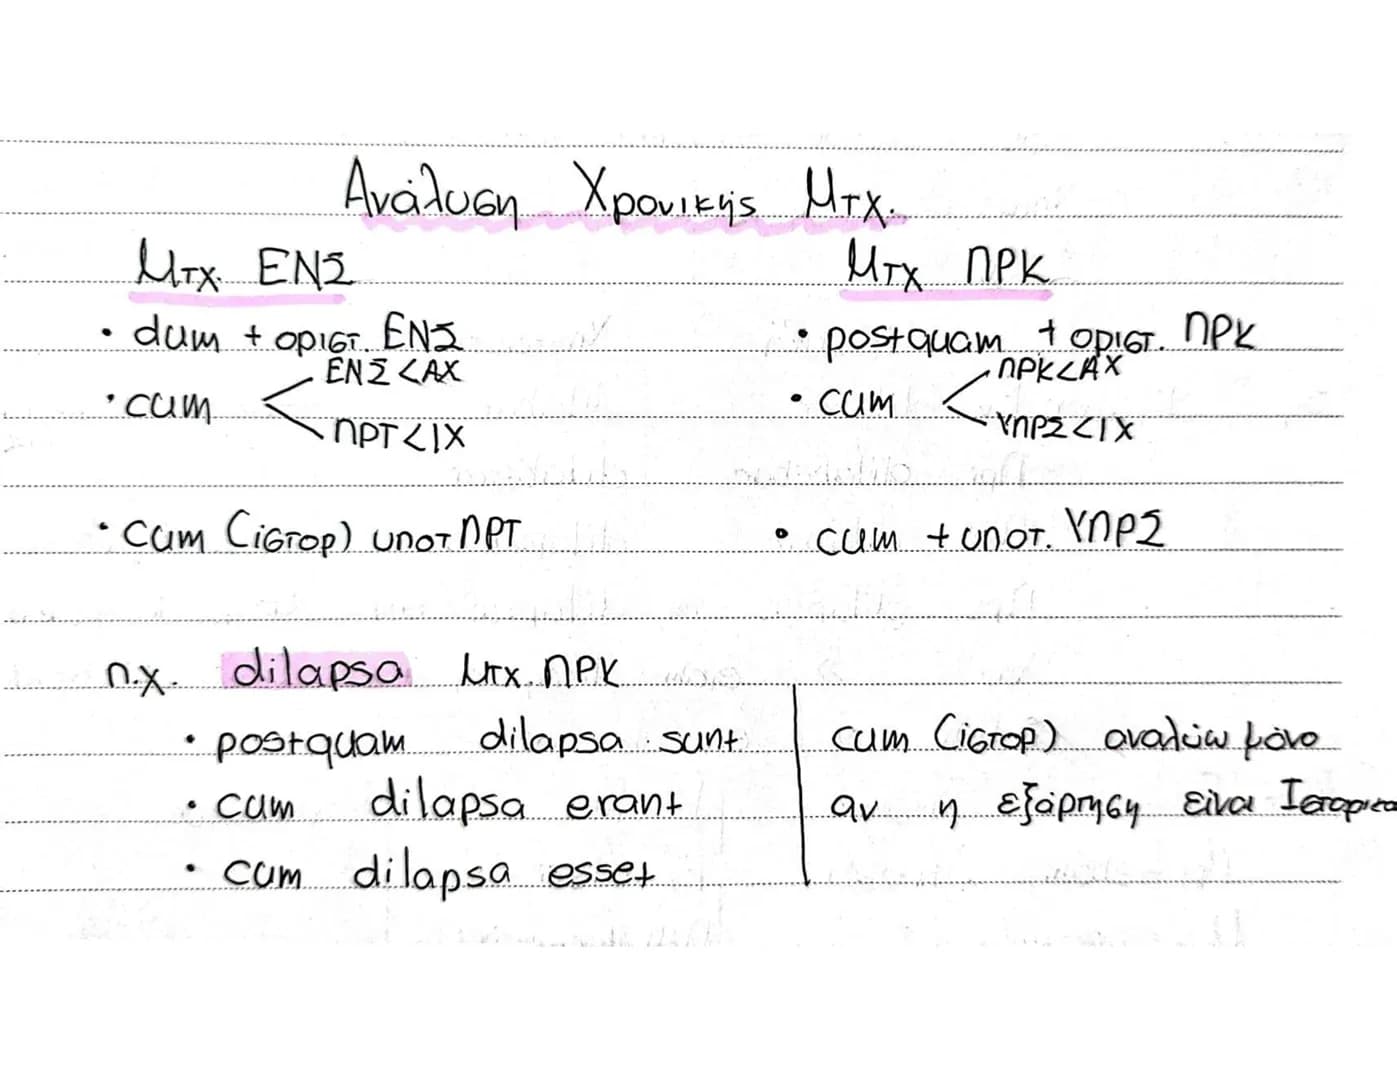 Ανάλυση Χρονικής Μτχ.
Μτχ. ΕΝΣ
• dum + οριστ. ΕΝΣ
• cum < ΕΝΣ < ΑΧ
ΠΡΤ < ΙΧ
• Cum (ιστορ) υποτ ΠΡΤ
Μτχ ΠΡΚ
• postquam + οριστ. ΠΡΚ
• cum < ΠΡΚ < ΑΧ
ΥΠΡΣ < ΙΧ
• cum + υποτ. ΥΠΡΣ
π.χ. dilapsa Μτχ. ΠΡΚ
• postquam dilapsa sunt
• cum dilapsa erant
• cum dilapsa esset
cum (ιστορ) αναλύω μόνο
αν η εξάρτηση είναι